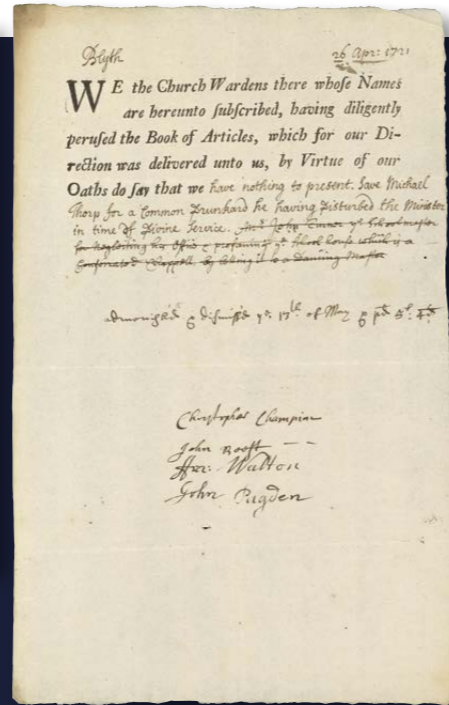 Blyth 26 Apr: 1721
WE the Church Wardens there whose Names
are hereunto ſubſcribed, having diligently
peruſed the Book of Articles, which for our Di-
rection was delivered unto us, by Virtue of our
Oaths do ſay that we have nothing to present. Save Michael
Thorp for a Common Drunkard he having Disturbed the Minister
in time of Divine Service. And John Turner ye School master
for Neglecting his Office & profaning ye School house which is a
Consecrated Chappell, by letting it to a Dancing Master
admonished & dismiss'd ye 17th of May & pd 5s: 4d
Christopher Champion
John Rooſt
Walton
John Pagden